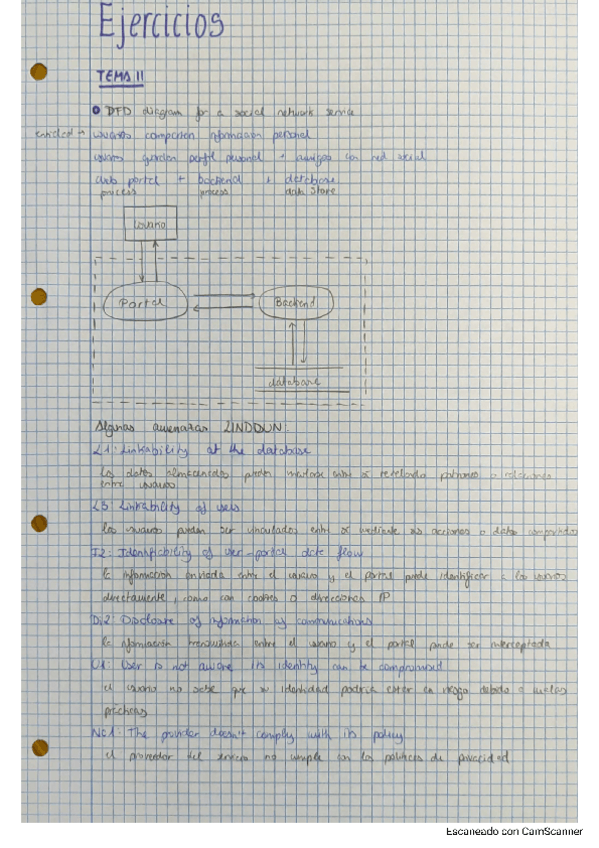 Ejercicios
TEMA 11
DFD diagram for a social network service
usuarios comparten información personal
usuarios guardan perfil personal + amigos en red social
web portal + backend + database
process process data store
usuario
Portal
Backend
database
Algunas amenazas LINDDUN:
L1: Linkability at the database
los datos almacenados pueden vincularse entre sí revelando patrones o relaciones
entre usuarios
L3 Linkability of users
los usuarios pueden ser vinculados entre sí mediante sus acciones o datos compartidos
I2: Identifiability of user-portal data flow
la información enviada entre el usuario y el portal puede identificar a los usuarios
directamente, como con cookies o direcciones IP
Di2: Disclosure of information of communications
la información transmitida entre el usuario y el portal puede ser interceptada
U1: User is not aware its identity can be compromised
el usuario no sabe que su identidad podría estar en riesgo debido a malas
prácticas
Nc1: The provider doesn't comply with its policy
el proveedor del servicio no cumple con las políticas de privacidad
Escaneado con CamScanner